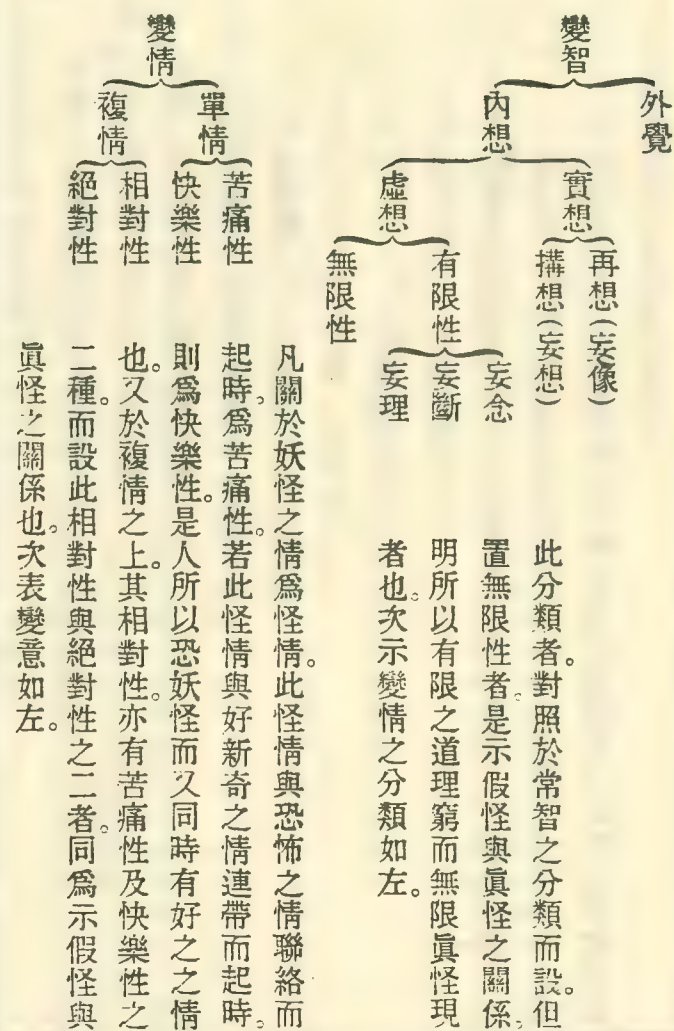 外覺
變智
內想
實想
再想（妄像）
搆想（妄想）
虛想
有限性
妄念
妄斷
妄理
無限性
此分類者。對照於常智之分類而設。但
置無限性者。是示假怪與眞怪之關係。
明所以有限之道理窮而無限眞怪現
者也。次示變情之分類如左。
變情
單情
苦痛性
快樂性
複情
相對性
絕對性
凡關於妖怪之情爲怪情。此怪情與恐怖之情聯絡而
起時。爲苦痛性。若此怪情與好新奇之情連帶而起時。
則爲快樂性。是人所以恐妖怪而又同時有好之之情
也。又於複情之上。其相對性。亦有苦痛性及快樂性之
二種。而設此相對性與絕對性之二者。同爲示假怪與
眞怪之關係也。次表變意如左。